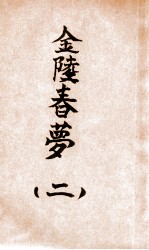 金陵春夢
(二)